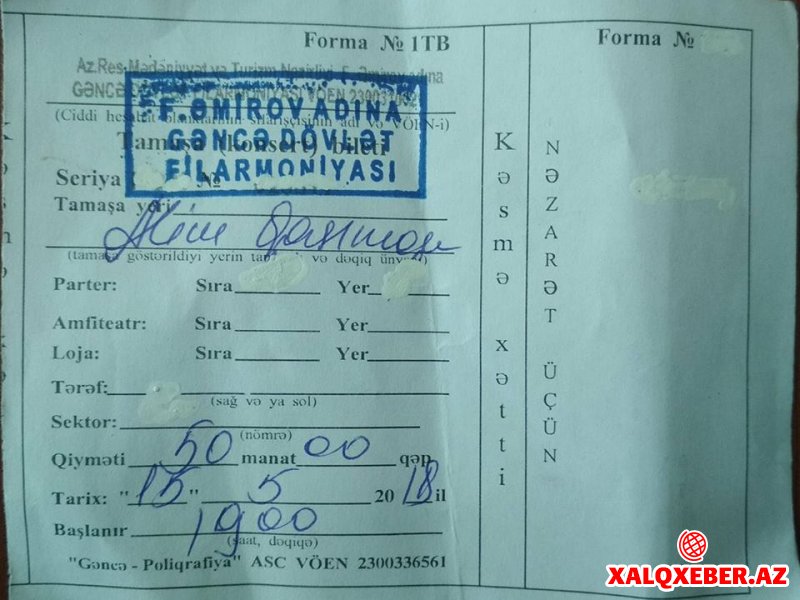 Forma № 1TB
Az.Res.Mədəniyyət və Turizm Nazirliyi F.Əmirov adına
GƏNCƏ
VÖEN 2300
F.ƏMİROV ADINA
GƏNCƏ DÖVLƏT
FİLARMONİYASI
(Ciddi he və VÖEN-i)
Tamaşa (konsert) bileti
Seriya №
Tamaşa yeri
Alim Qasımov
(tamaşa göstərildiyi yerin və dəqiq ünvanı)
Parter: Sıra Yer
Amfiteatr: Sıra Yer
Loja: Sıra Yer
Tərəf:
(sağ və ya sol)
Sektor:
(nömrə)
Qiyməti 50 manat 00 qəp
Tarix: "15" 5 2018 il
Başlanır 1900
(saat, dəqiqə)
"Gəncə - Poliqrafiya" ASC VÖEN 2300336561
Kəsmə xətti
Forma №
NƏZARƏT ÜÇÜN
XALQXEBER.AZ